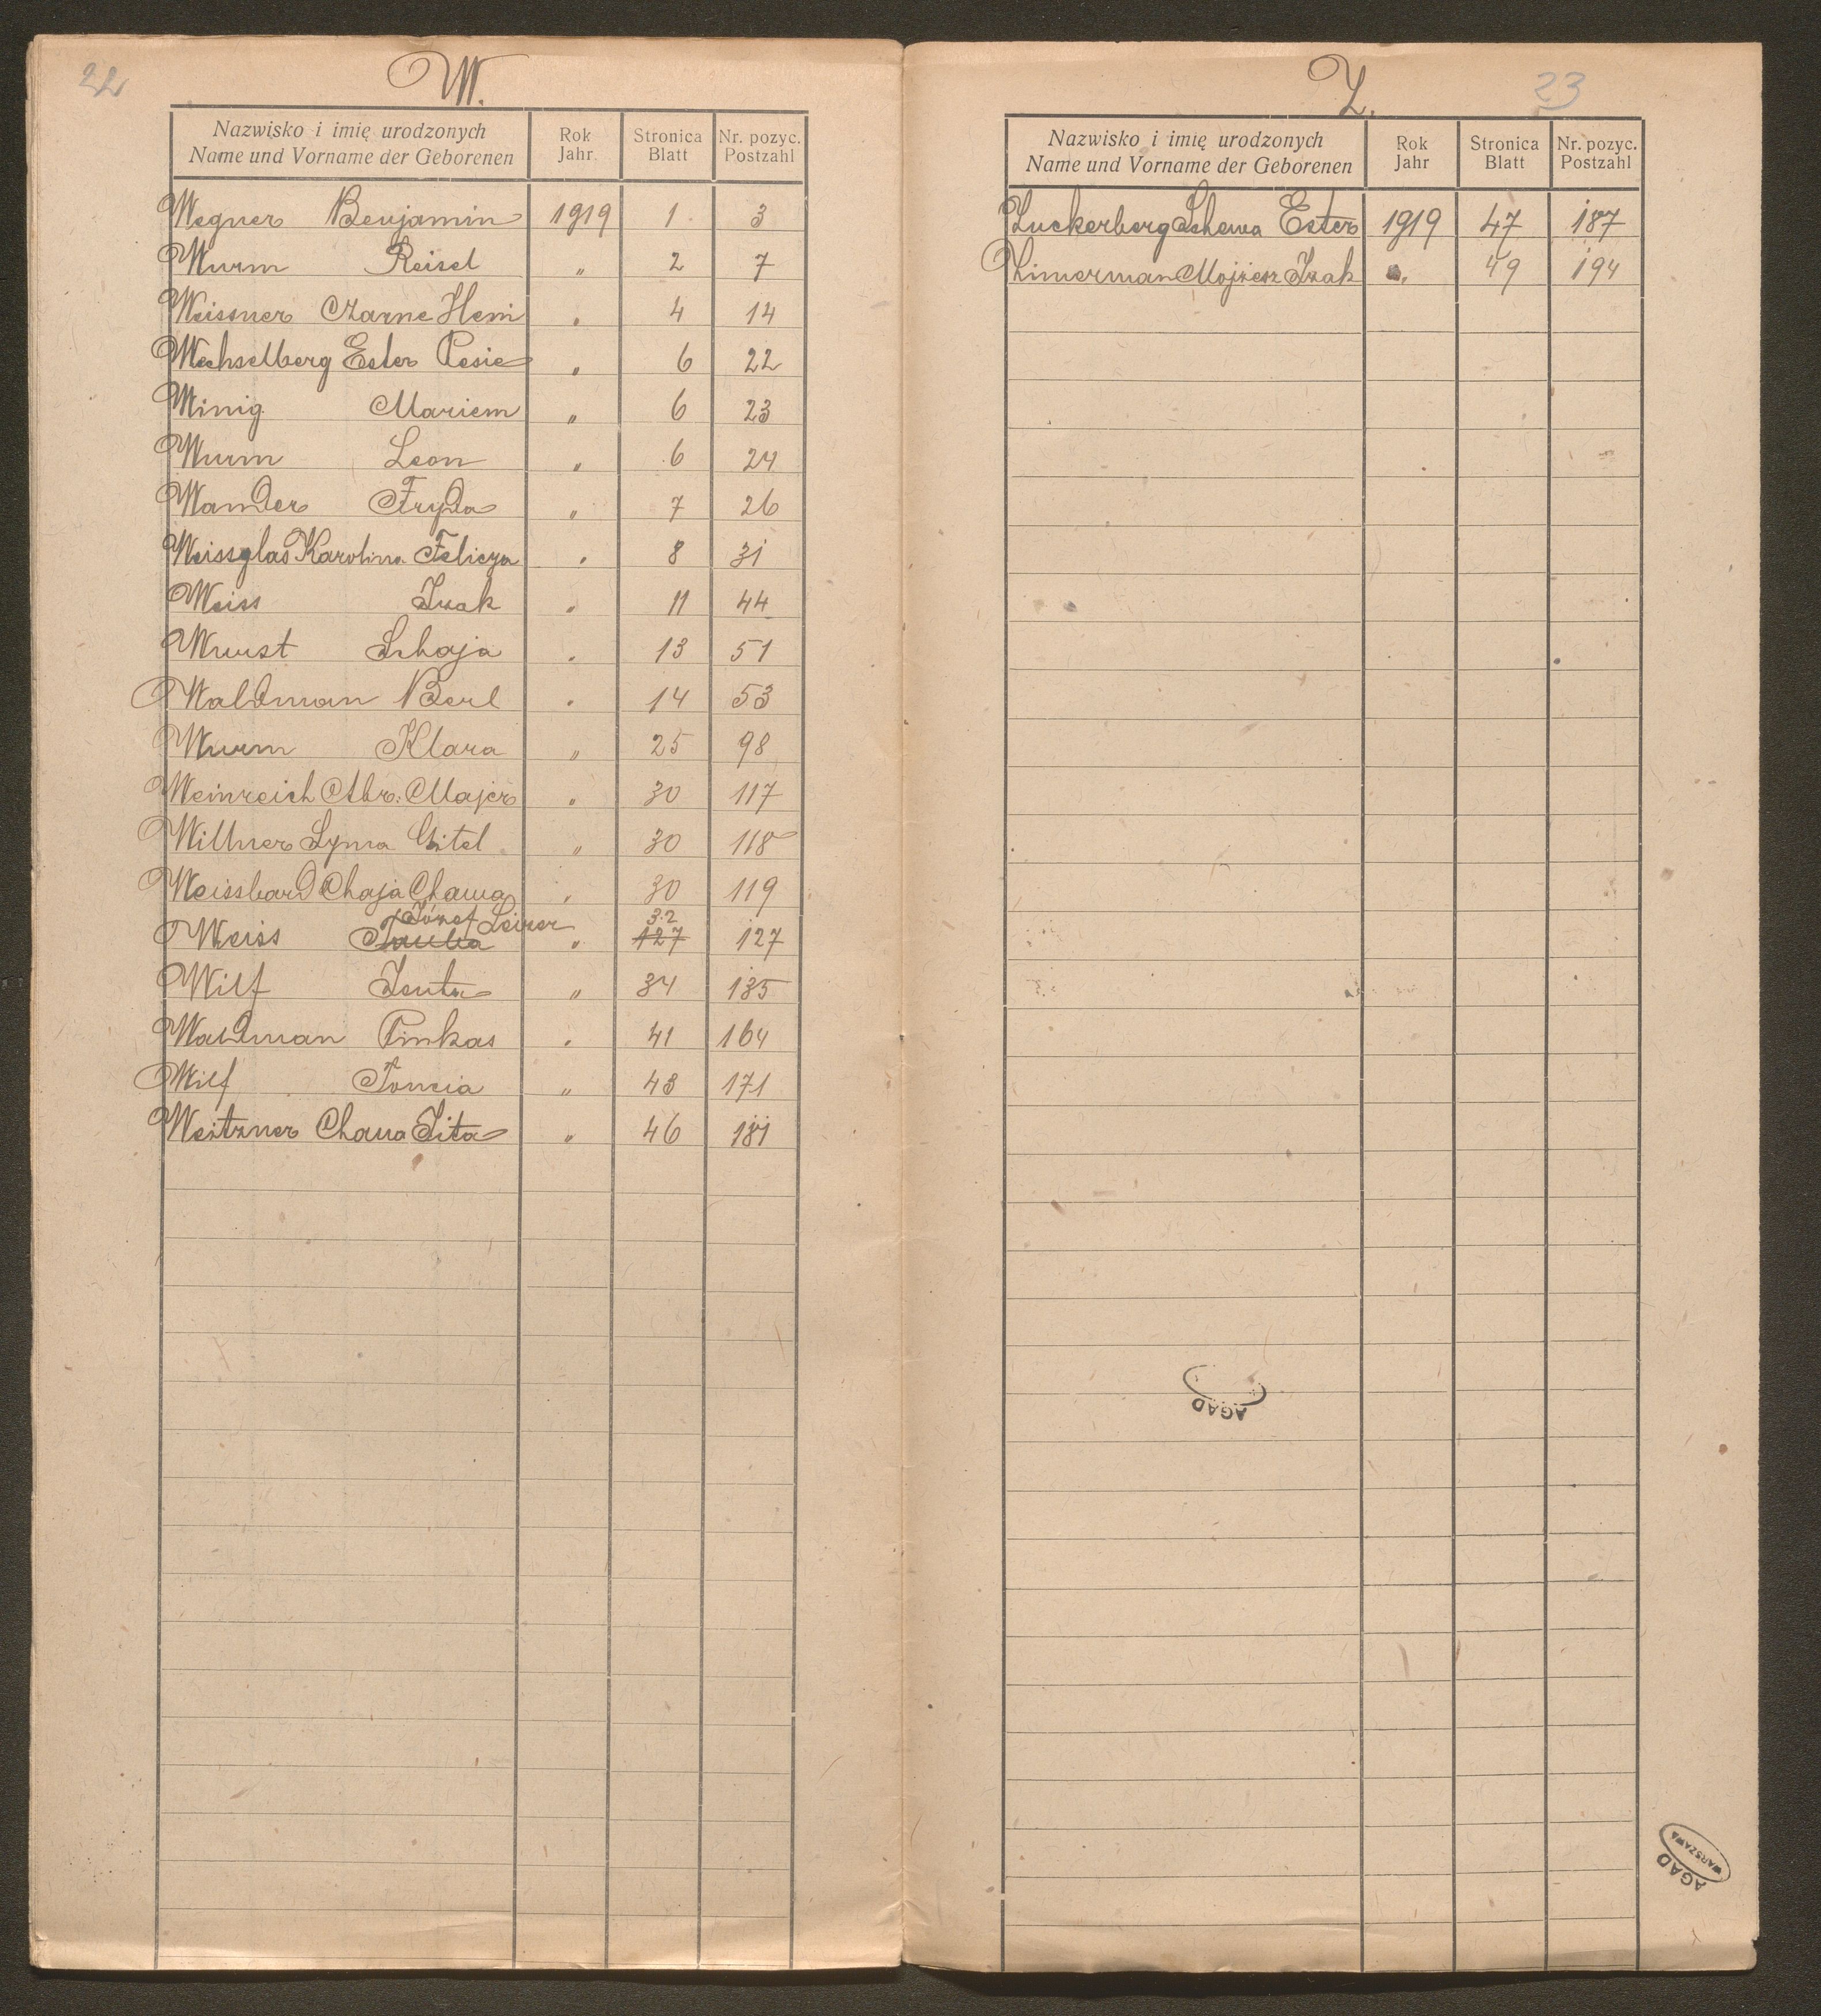 22
W.
Nazwisko i imię urodzonych Rok Stronica Nr. pozyc.
Name und Vorname der Geborenen Jahr. Blatt Postzahl
Wegner Benjamin 1919 1 3
Wurm Reisel " 2 7
Weissner Czarne Heni " 4 14
Wechselberg Ester Pesie " 6 22
Winig Mariem " 6 23
Wurm Leon " 6 24
Wander Fryda " 7 26
Weissglas Karolina Felicya " 8 31
Weiss Izak " 11 44
Wurst Schaja " 13 51
Waldman Berl " 14 53
Wurm Klara " 25 98
Weinreich Abr. Majer " 30 117
Willner Syma Gitel " 30 118
Weissbard Chaja Chawa " 30 119
Józef Leizer 32
Weiss Tauba " 127 127
Wilf Jenta " 34 135
Waldman Pinkas " 41 164
Wilf Toncia " 43 171
Weitzner Chawa Sita " 46 181
23
Z.
Nazwisko i imię urodzonych Rok Stronica Nr. pozyc.
Name und Vorname der Geborenen Jahr Blatt Postzahl
Zuckerberg Schewa Ester 1919 47 187
Zimerman Mojżesz Izak " 49 194
AGAD
AGAD
WARSZAWA